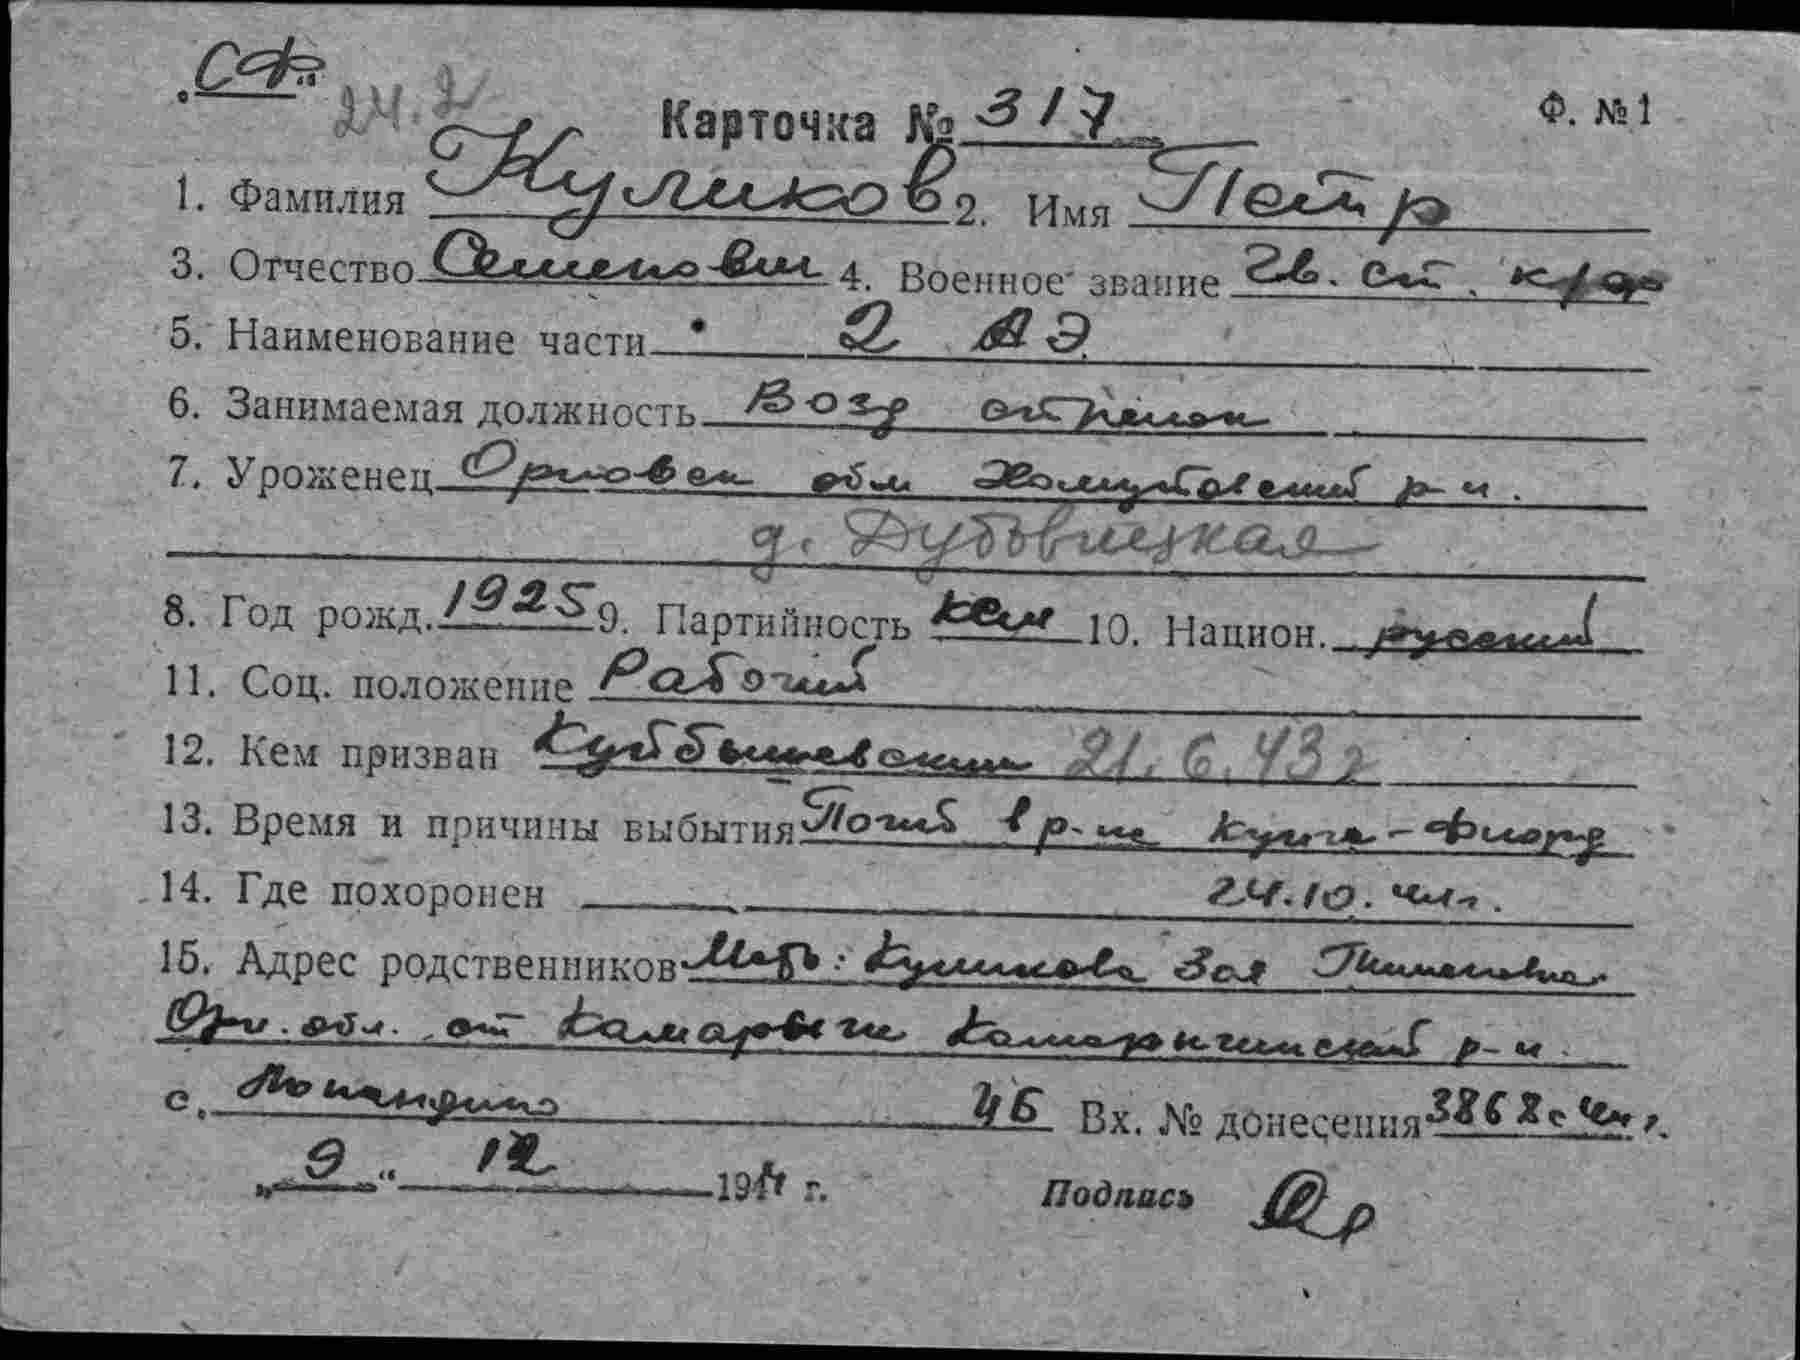 „СФ“
24.2
Карточка № 317
Ф. №1
1. Фамилия Куликов 2. Имя Петр
3. Отчество Семенович 4. Военное звание Гв. ст. к/ф
5. Наименование части 2 АЭ
6. Занимаемая должность Возд стрелок
7. Уроженец Орловск обл Хомутовский р-н.
д. Дубовицкая
8. Год рожд. 1925 9. Партийность 10. Национ. русский
11. Соц. положение Рабочий
12. Кем призван Куйбышевским 21.6.43г
13. Время и причины выбытия Погиб в р-не Кунгс-Фиорд
14. Где похоронен 24.10.44г.
15. Адрес родственников Мать: Куликова Зоя
Орл. обл. ст Камарычи Комарычинский р-н.
с. 46 Вх. № донесения 3868с 44г.
„9“ 12 1944 г. Подпись